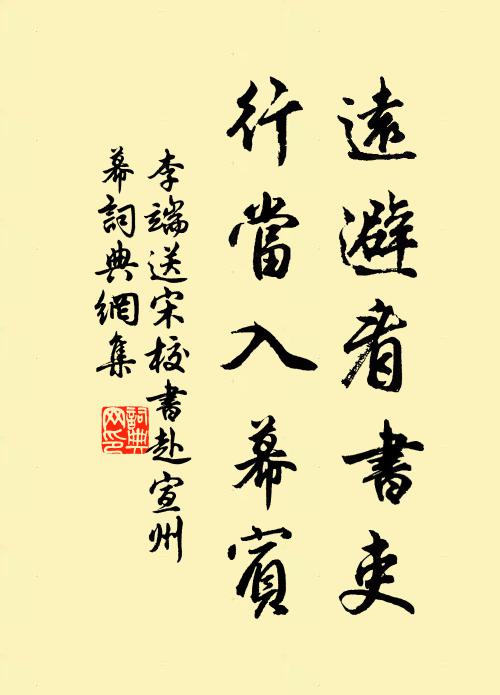 遠避看書吏
行當入幕賓
李端送宋校書赴宣州
幕詞典網集
詞典网印